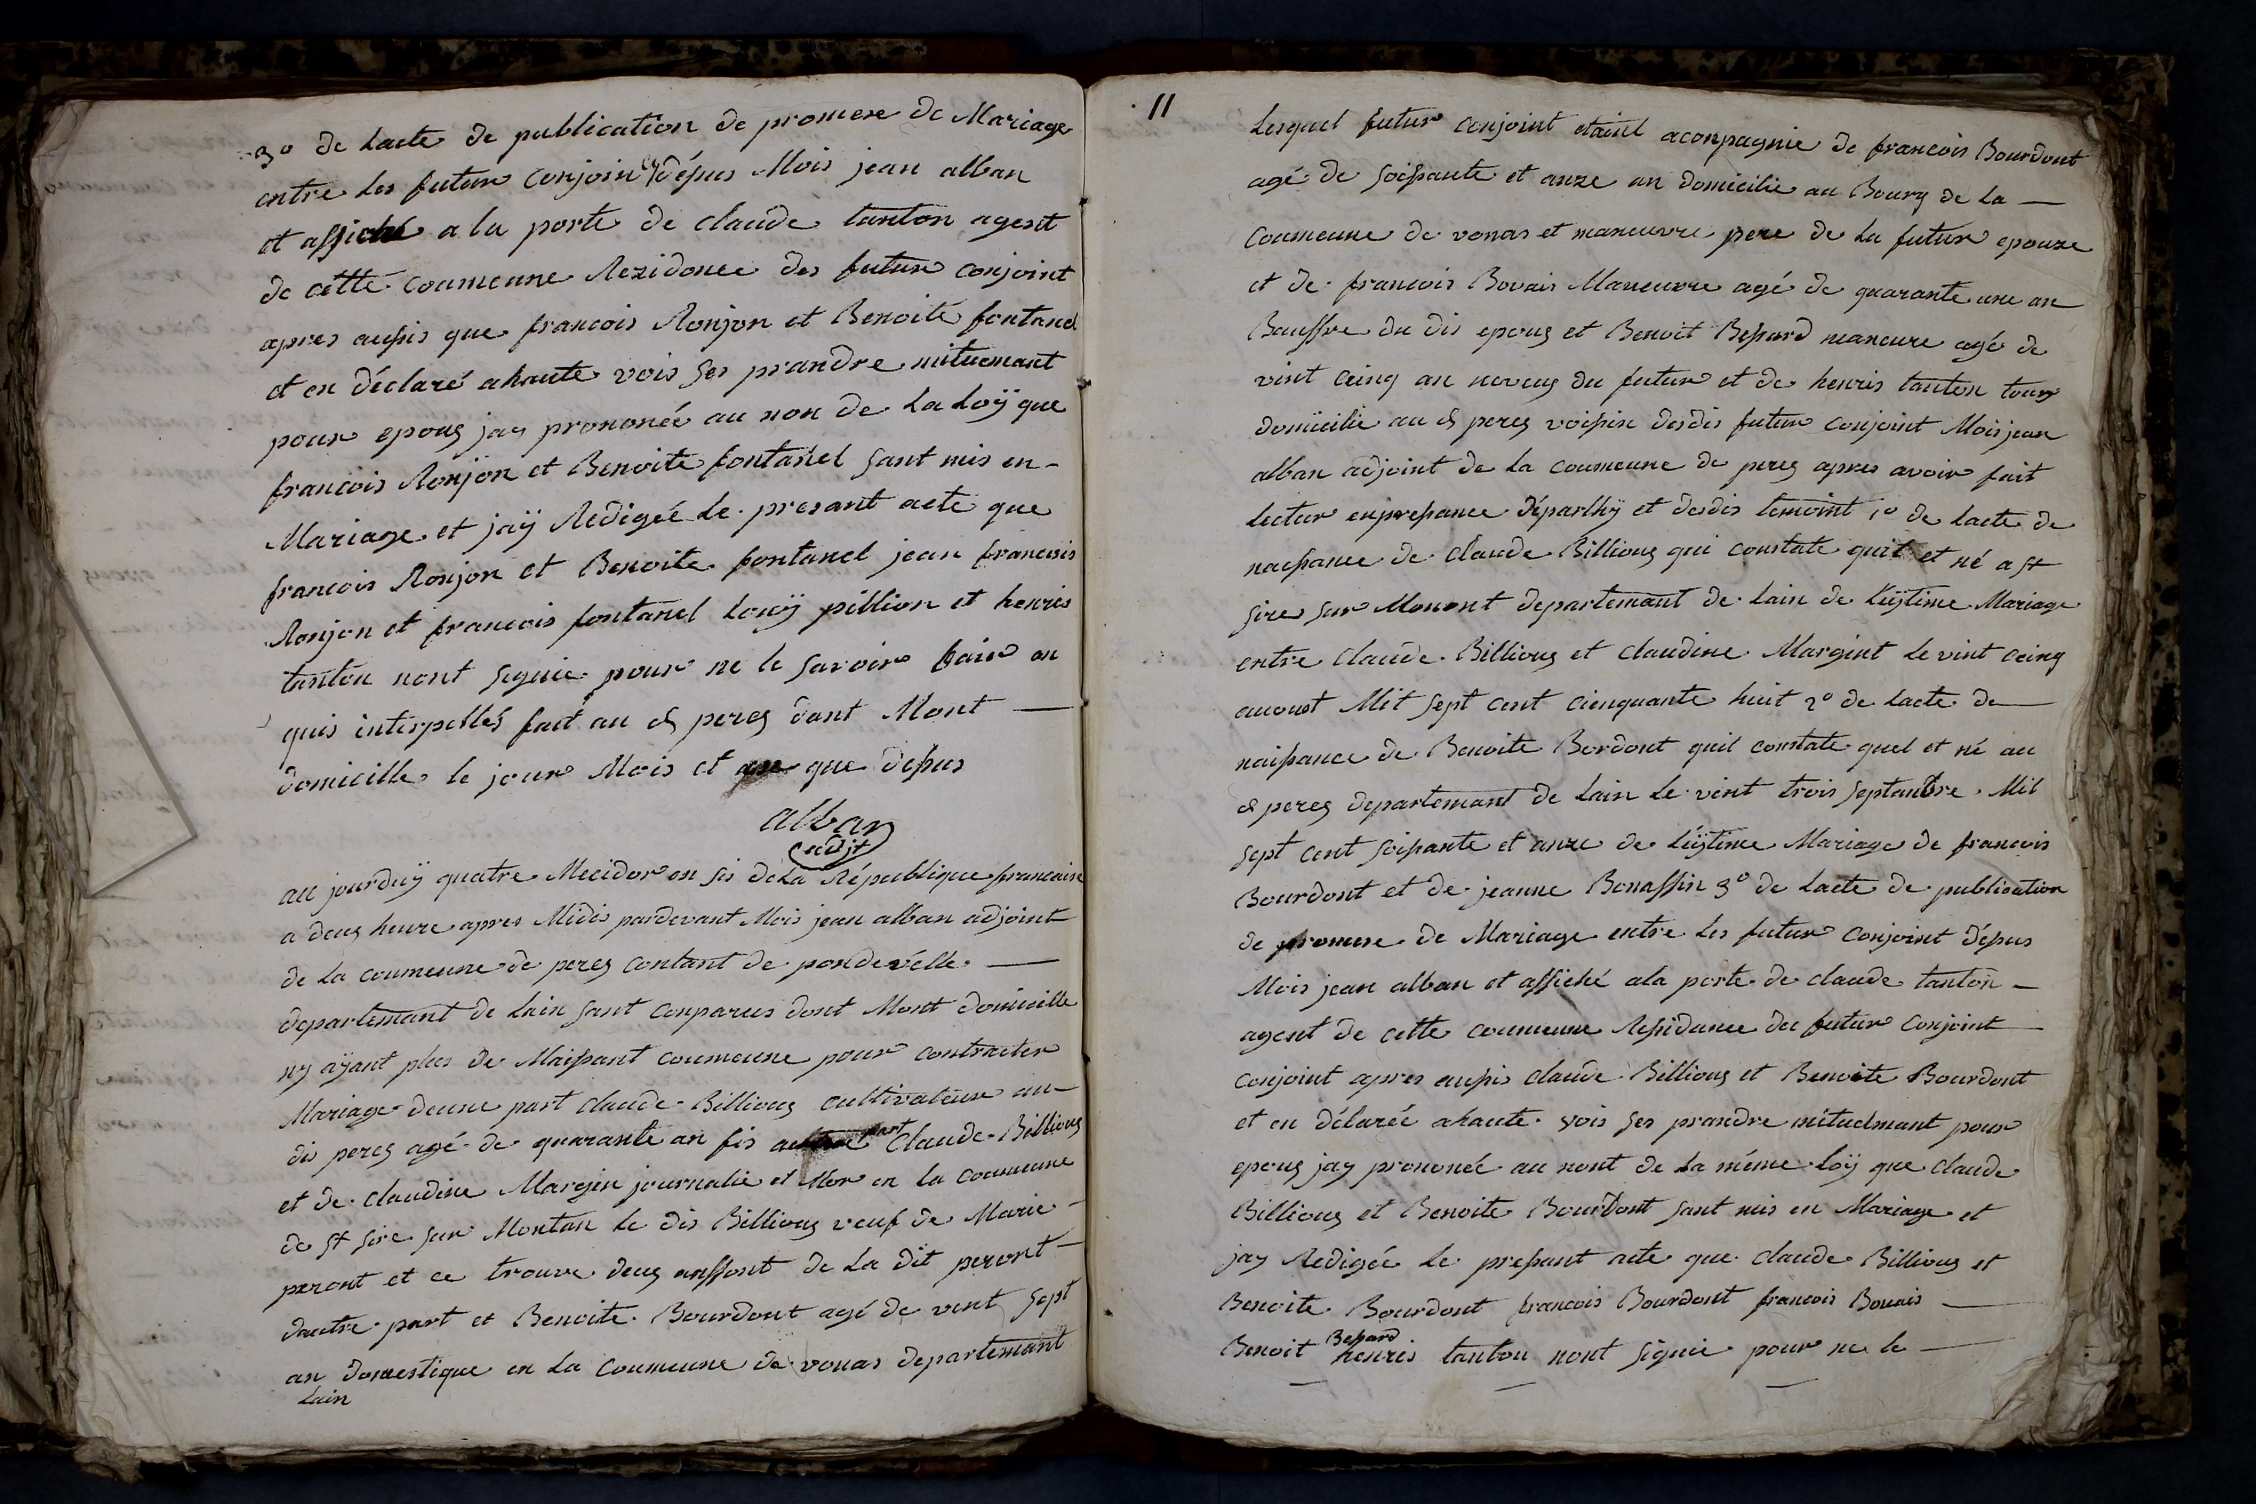 3o de lacte de publication de promese de Mariage
entre les futur conjoin dépus Mois jean alban
et affiché a la porte de claude tanton agent
de cette coumeune Rezidence des futur conjoint
apres aupis que francois Ronjon et Benoite fontanel
et en déclaré ahaute vois ses prandre mituemant
pour epoug jay prononcé au non de La Loÿ que
francois Ronjon et Benoite fontanel sant mis en -
Mariage et jaÿ Redigée le presant acte que
francois Ronjon et Benoite fontanel jean francois
Ronjon et francois fontanel Louÿ pillion et henris
tanton nont signie pour ne le savoir fair en
quis interpellés fait au d pereg dant Mont —
domicille le jour Mois et an que depus
alban
adjt
au jourduÿ quatre Mecidor en sis de La République francaise
a deug heure apres Midis pardevant Mois jean alban adjoint
de La coumeune de pereg contant de pondevélle —
departemant de Lain sant conparus dont Mont domicille
nÿ aÿant plus de Maipant coumeune pour contracter
Mariage deune part claude Billioug cultivateur au
dis pereg agé de quarante an fis part Claude Billioug
et de claudine Margin journalie et Mor en La coumeune
de st sire sur Montan le dis Billioug veuf de Marie -
peront et ce trouve deug anffont de La dit peront -
dautre part et Benoite Bourdont agé de vint sept
an domestique en La coumeune de vonas departemant
Lain
11
Lesquel futur conjoint etaint aconpagnie de francois Bourdont
agé de soipante et anze an domicilie au Bourg de La —
coumeune de vonas et maneuvre pere de La futur epouze
et de francois Bovais Maneuvre agé de quarante une an
Bauffre du dis epoug et Benoit Bepard maneure agé de
vint ceinq an neveug du futur et de henris tanton toug
domicilie au d pereg voipin desdis futur conjoint Mois jean
alban adjoint de La coumeune de pereg apres avoir fait
Lectur enprepance départhÿ et desdis temoint 1o de Lacte de
naepance de claude Billioug qui constate quil et né a st
sire sur Monont departemant de Lain de Léÿtime Mariage
entre claude Billioug et claudine Margint le vint ceinq
auoust Mit sept cent cienquante huit 2o de Lacte de —
naipance de Benoite Bordont quil constate quel et né au
d pereg departemant de Lain le vint trois septanbre Mil
sept cent soipante et anze de Léÿtime Mariage de francois
Bourdont et de jeanne Bonaffin 3o de Lacte de publication
de promese de Mariage entre les futur conjoint dépus
Mois jean alban et affiché ala porte de claude tanton —
agent de cette coumeune Repidance des futur conjoint
conjoint apres aupis claude Billioug et Benoite Bourdont
et en délarée ahaute vois ses prandre mituelmant pour
epoug jaÿ prononcé au nont de La même Loÿ que claude
Billioug et Benoite Bourdont sant mis en Mariage et
jay Redigée Le prepant acte que claude Billioug et
Benoite Bourdont francois Bourdont francois Bovais —
Benoit Bepard henris tanton nont signie pour ne le —